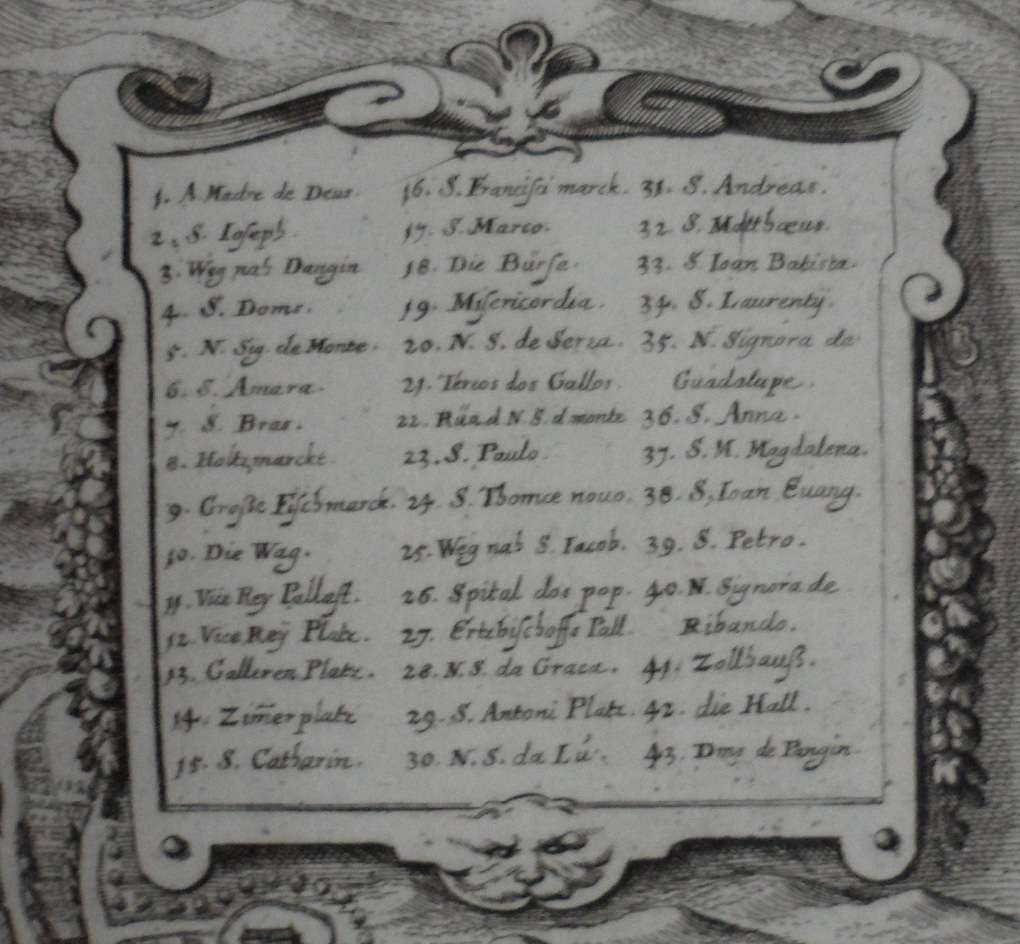 1. A Madre de Deus.
2. S. Ioseph.
3. Weg nah Dangin
4. S. Doms.
5. N. Sig. de Monte.
6. S. Amara.
7. S. Bras.
8. Holtzmarckt.
9. Große Fischmarck.
10. Die Wag.
11. Vice Rey Pallast.
12. Vice Reÿ Platz.
13. Galleren Platz.
14. Zim̄erplatz
15. S. Catharin.
16. S. Francisci marck.
17. S. Marco.
18. Die Bürse.
19. Misericordia.
20. N. S. de Serra.
21. Teros dos Gallos.
22. Rüa d N S. d monte
23. S. Paulo.
24. S. Thomæ nouo.
25. Weg nah S. Iacob.
26. Spital dos pop.
27. Ertzbischoffs Pall.
28. N. S. da Graca.
29. S. Antoni Platz.
30. N. S. da Lú.
31. S. Andreas.
32 S. Matthœus.
33. S. Ioan Batista.
34. S. Laurentÿ.
35. N. Signora de
Guadalupe.
36. S. Anna.
37. S. M. Magdalena.
38. S. Ioan Euang.
39. S. Petro.
40. N. Signora de
Ribando.
41. Zollhauß.
42. die Hall.
43. Dms de Pangin.